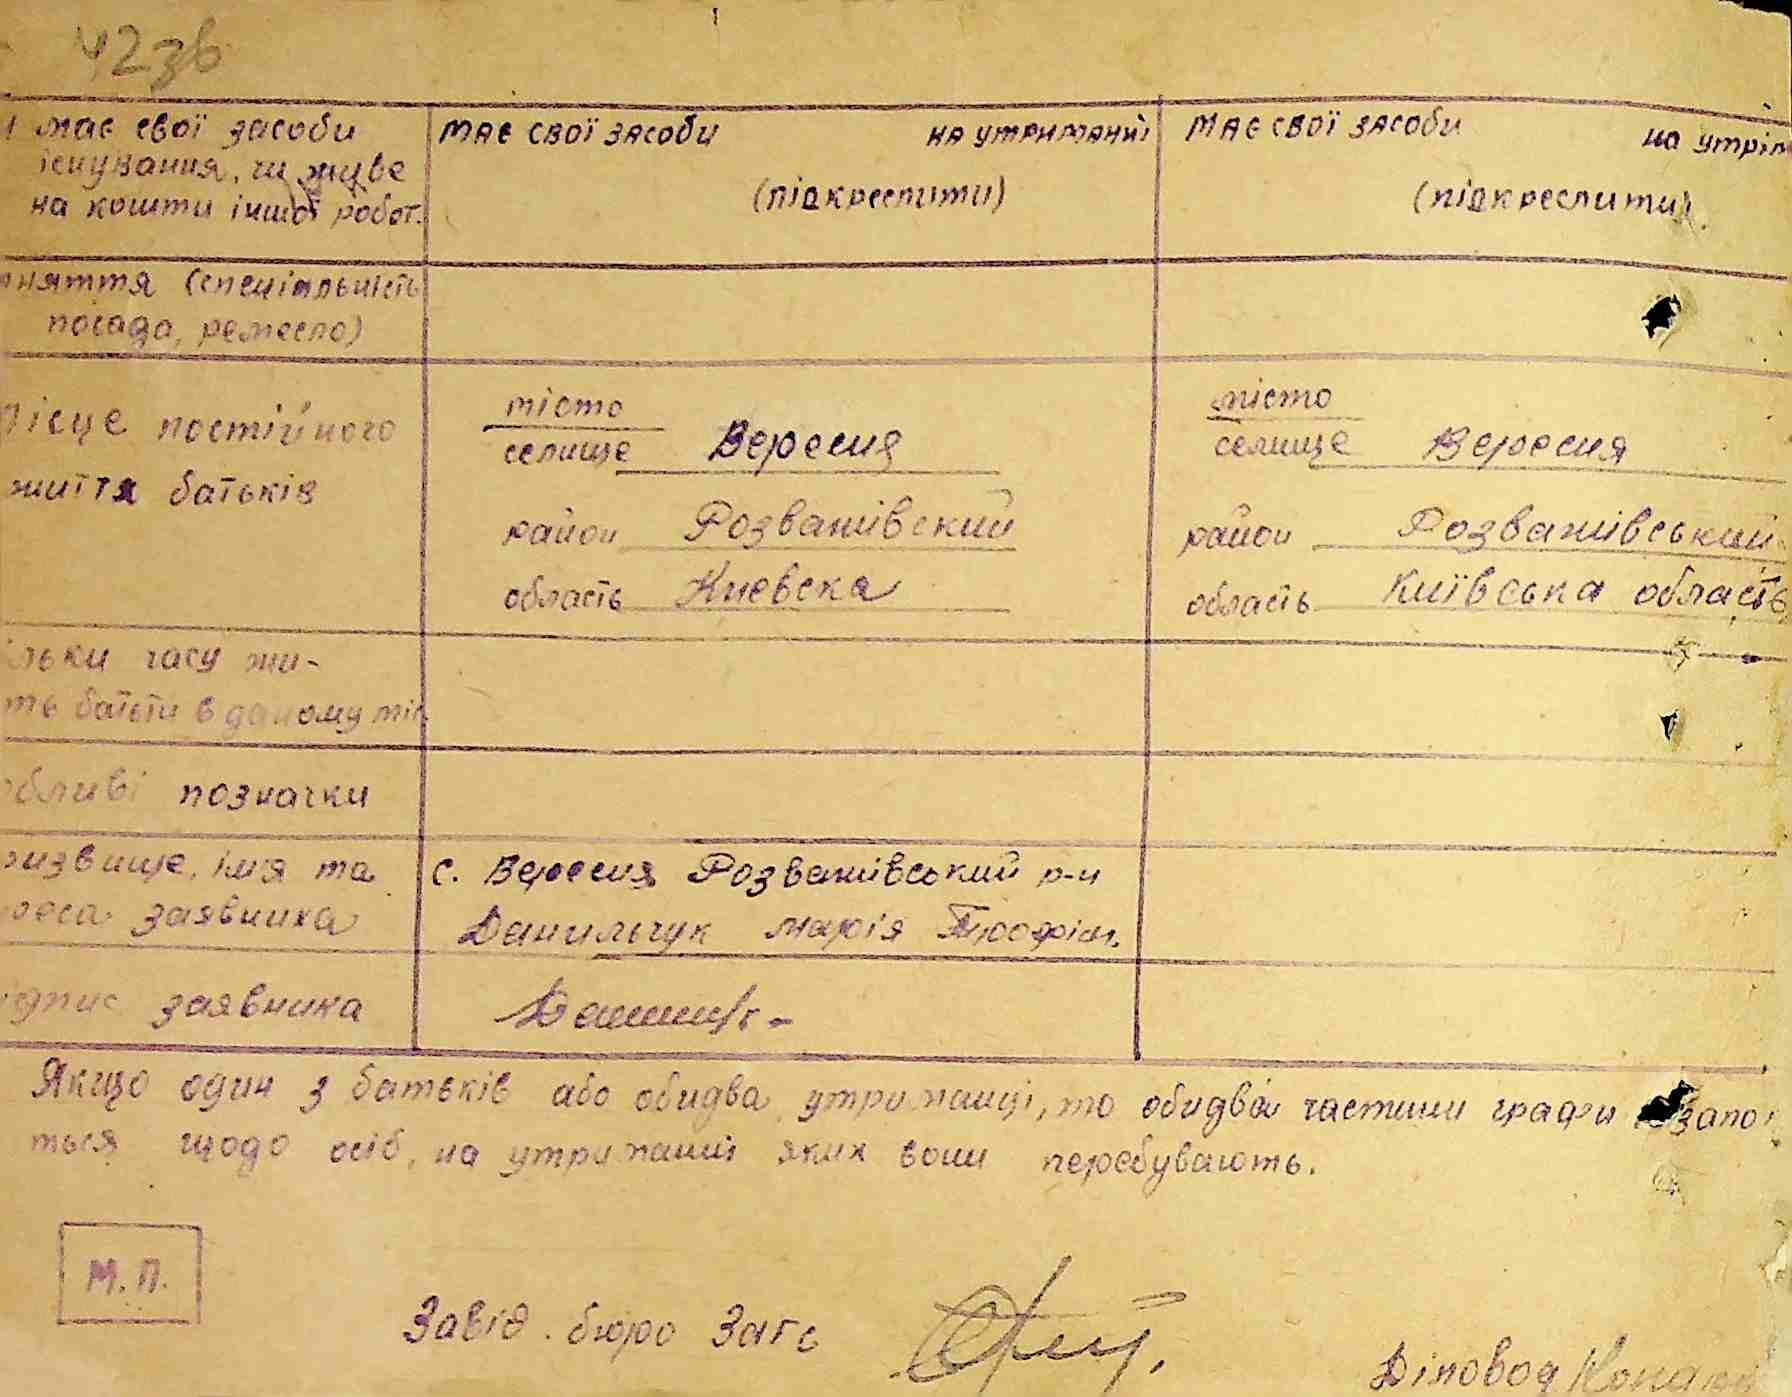 42 зв
має свої засоби
існування, чи живе
на кошти іншої робот.
МАЄ СВОЇ ЗАСОБИ НА УТРИМАННІ
(підкреслити)
МАЄ СВОЇ ЗАСОБИ на утрим
(підкреслити)
няття (спеціальність
посада, ремесло)
Місце постійного
життя батьків
місто
селище Вересня
район Розважівский
область Киевска
місто
селище Вересня
район Розважівський
область Київська область
льки часу жи-
ть батьки в даному міс
обливі позначки
ризвище, імя та
реса заявника
с. Вересня Розважівський р-н
Данильчук Марія Трофім.
ідпис заявника
Якщо один з батьків або обидва утриманці, то обидва частини графи запо
ться щодо осіб, на утриманні яких вони перебувають.
М.П.
Завід. бюро Загс
Діловод